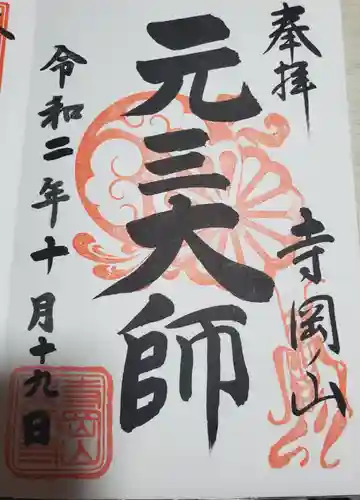 奉拝
寺岡山
元三大師
令和二年十月十九日